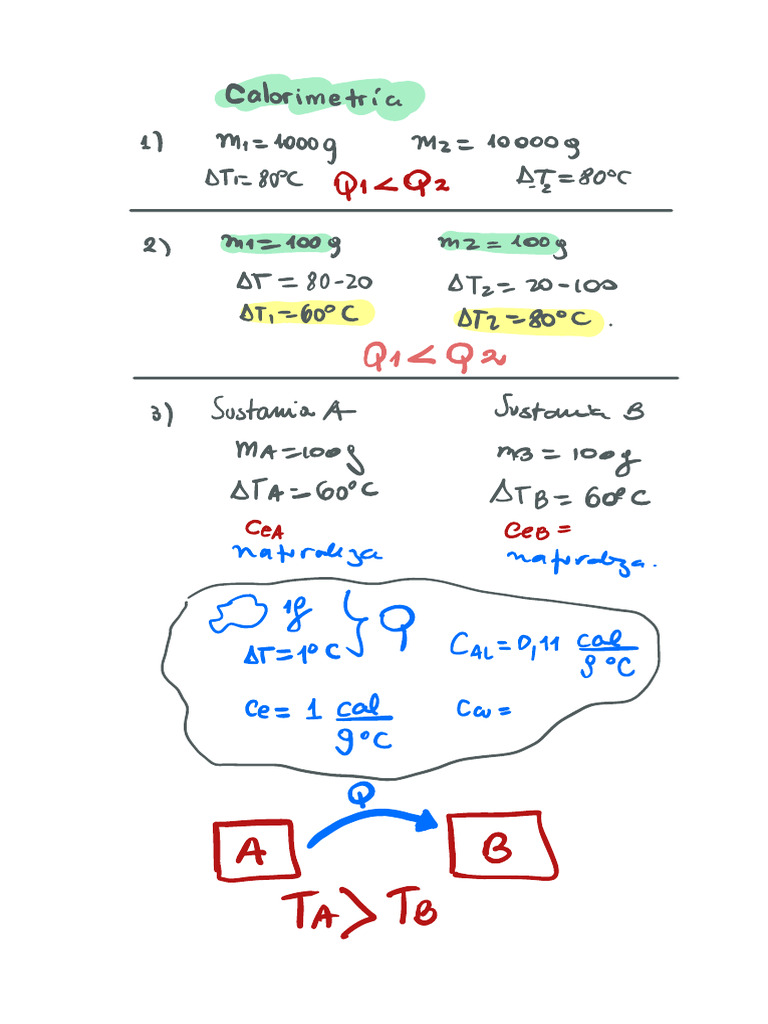 Calorimetría
1) m1 = 1000 g m2 = 10000 g
ΔT1 = 80°C Q1 < Q2 ΔT2 = 80°C
2) m1 = 100 g m2 = 100 g
ΔT = 80-20 ΔT2 = 20-100
ΔT1 = 60°C ΔT2 = 80°C.
Q1 < Q2
3) Sustania A Sustania B
mA = 100 g mB = 100 g
ΔTA = 60°C ΔTB = 60°C
CeA CeB =
naturaleza naturaleza.
1g } Q
ΔT = 1°C CAL = 0,11 cal/g°C
Ce = 1 cal/g°C
Q
A B
TA > TB